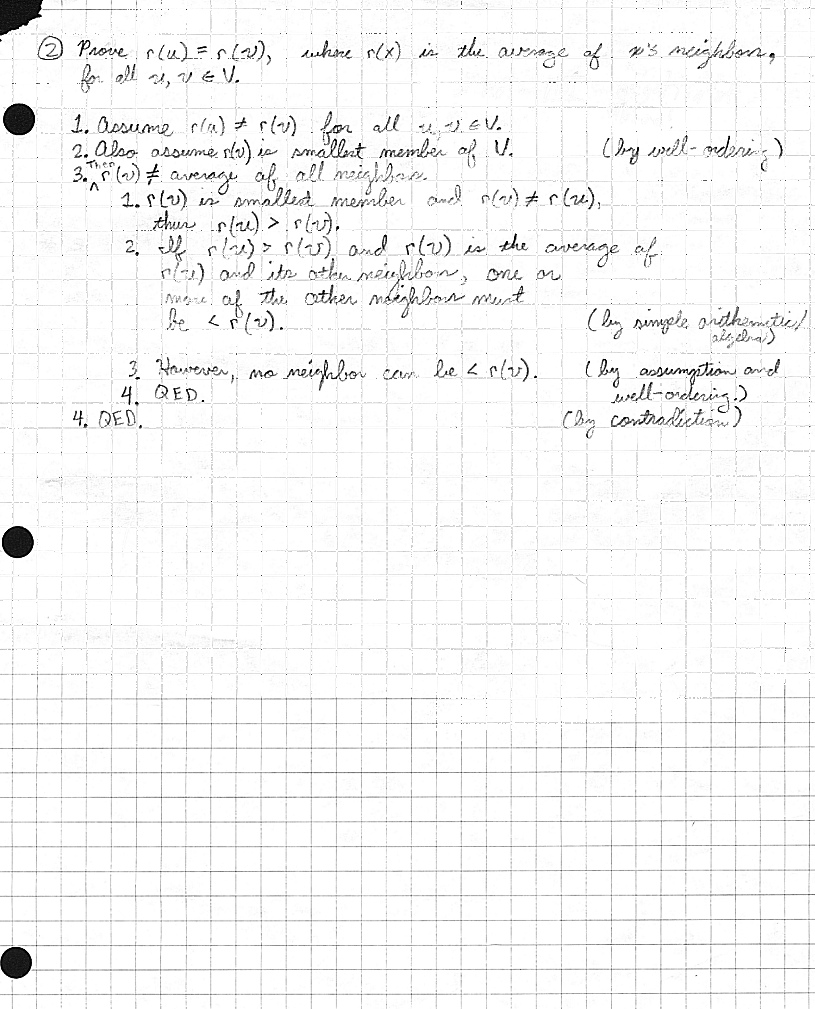 ② Prove r(u) = r(v), where r(x) is the average of x's neighbors,
for all u, v ∈ V.
1. Assume r(u) ≠ r(v) for all u, v ∈ V.
2. Also assume r(v) is smallest member of V. (by well-ordering)
3. Then r(v) ≠ average of all neighbors.
1. r(v) is smallest member and r(v) ≠ r(u),
thus r(u) > r(v).
2. If r(u) > r(v) and r(v) is the average of
r(u) and its other neighbors, one or
more of the other neighbors must
be < r(v). (by simple arithmetic/
algebra)
3. However, no neighbor can be < r(v). (by assumption and
4. QED. well-ordering.)
4. QED. (by contradiction)